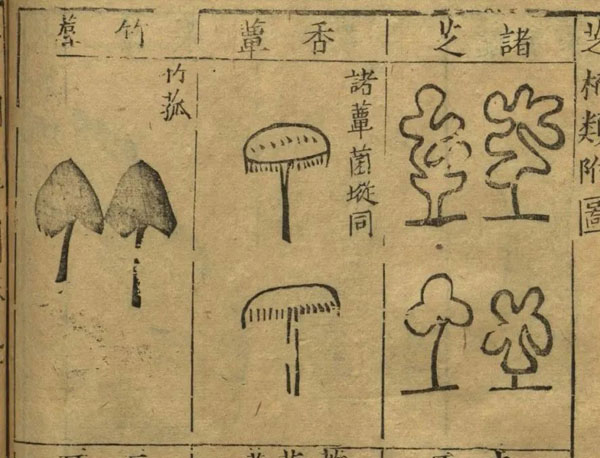 芝栭類附圖
諸芝
香蕈
諸蕈菌㙡同
竹蓐
竹菰